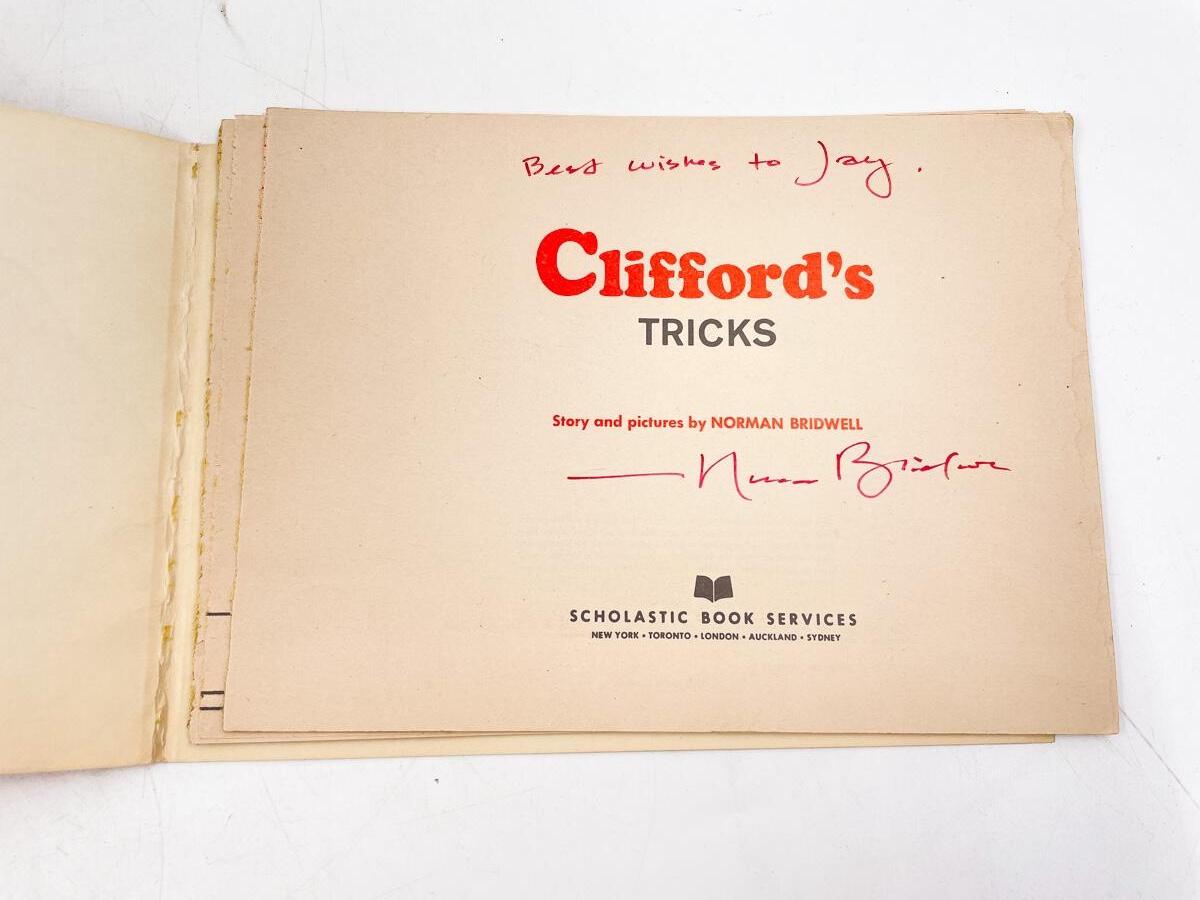 Best wishes to Jay.
Clifford's
TRICKS
Story and pictures by NORMAN BRIDWELL
— Norman Bridwell
SCHOLASTIC BOOK SERVICES
NEW YORK • TORONTO • LONDON • AUCKLAND • SYDNEY